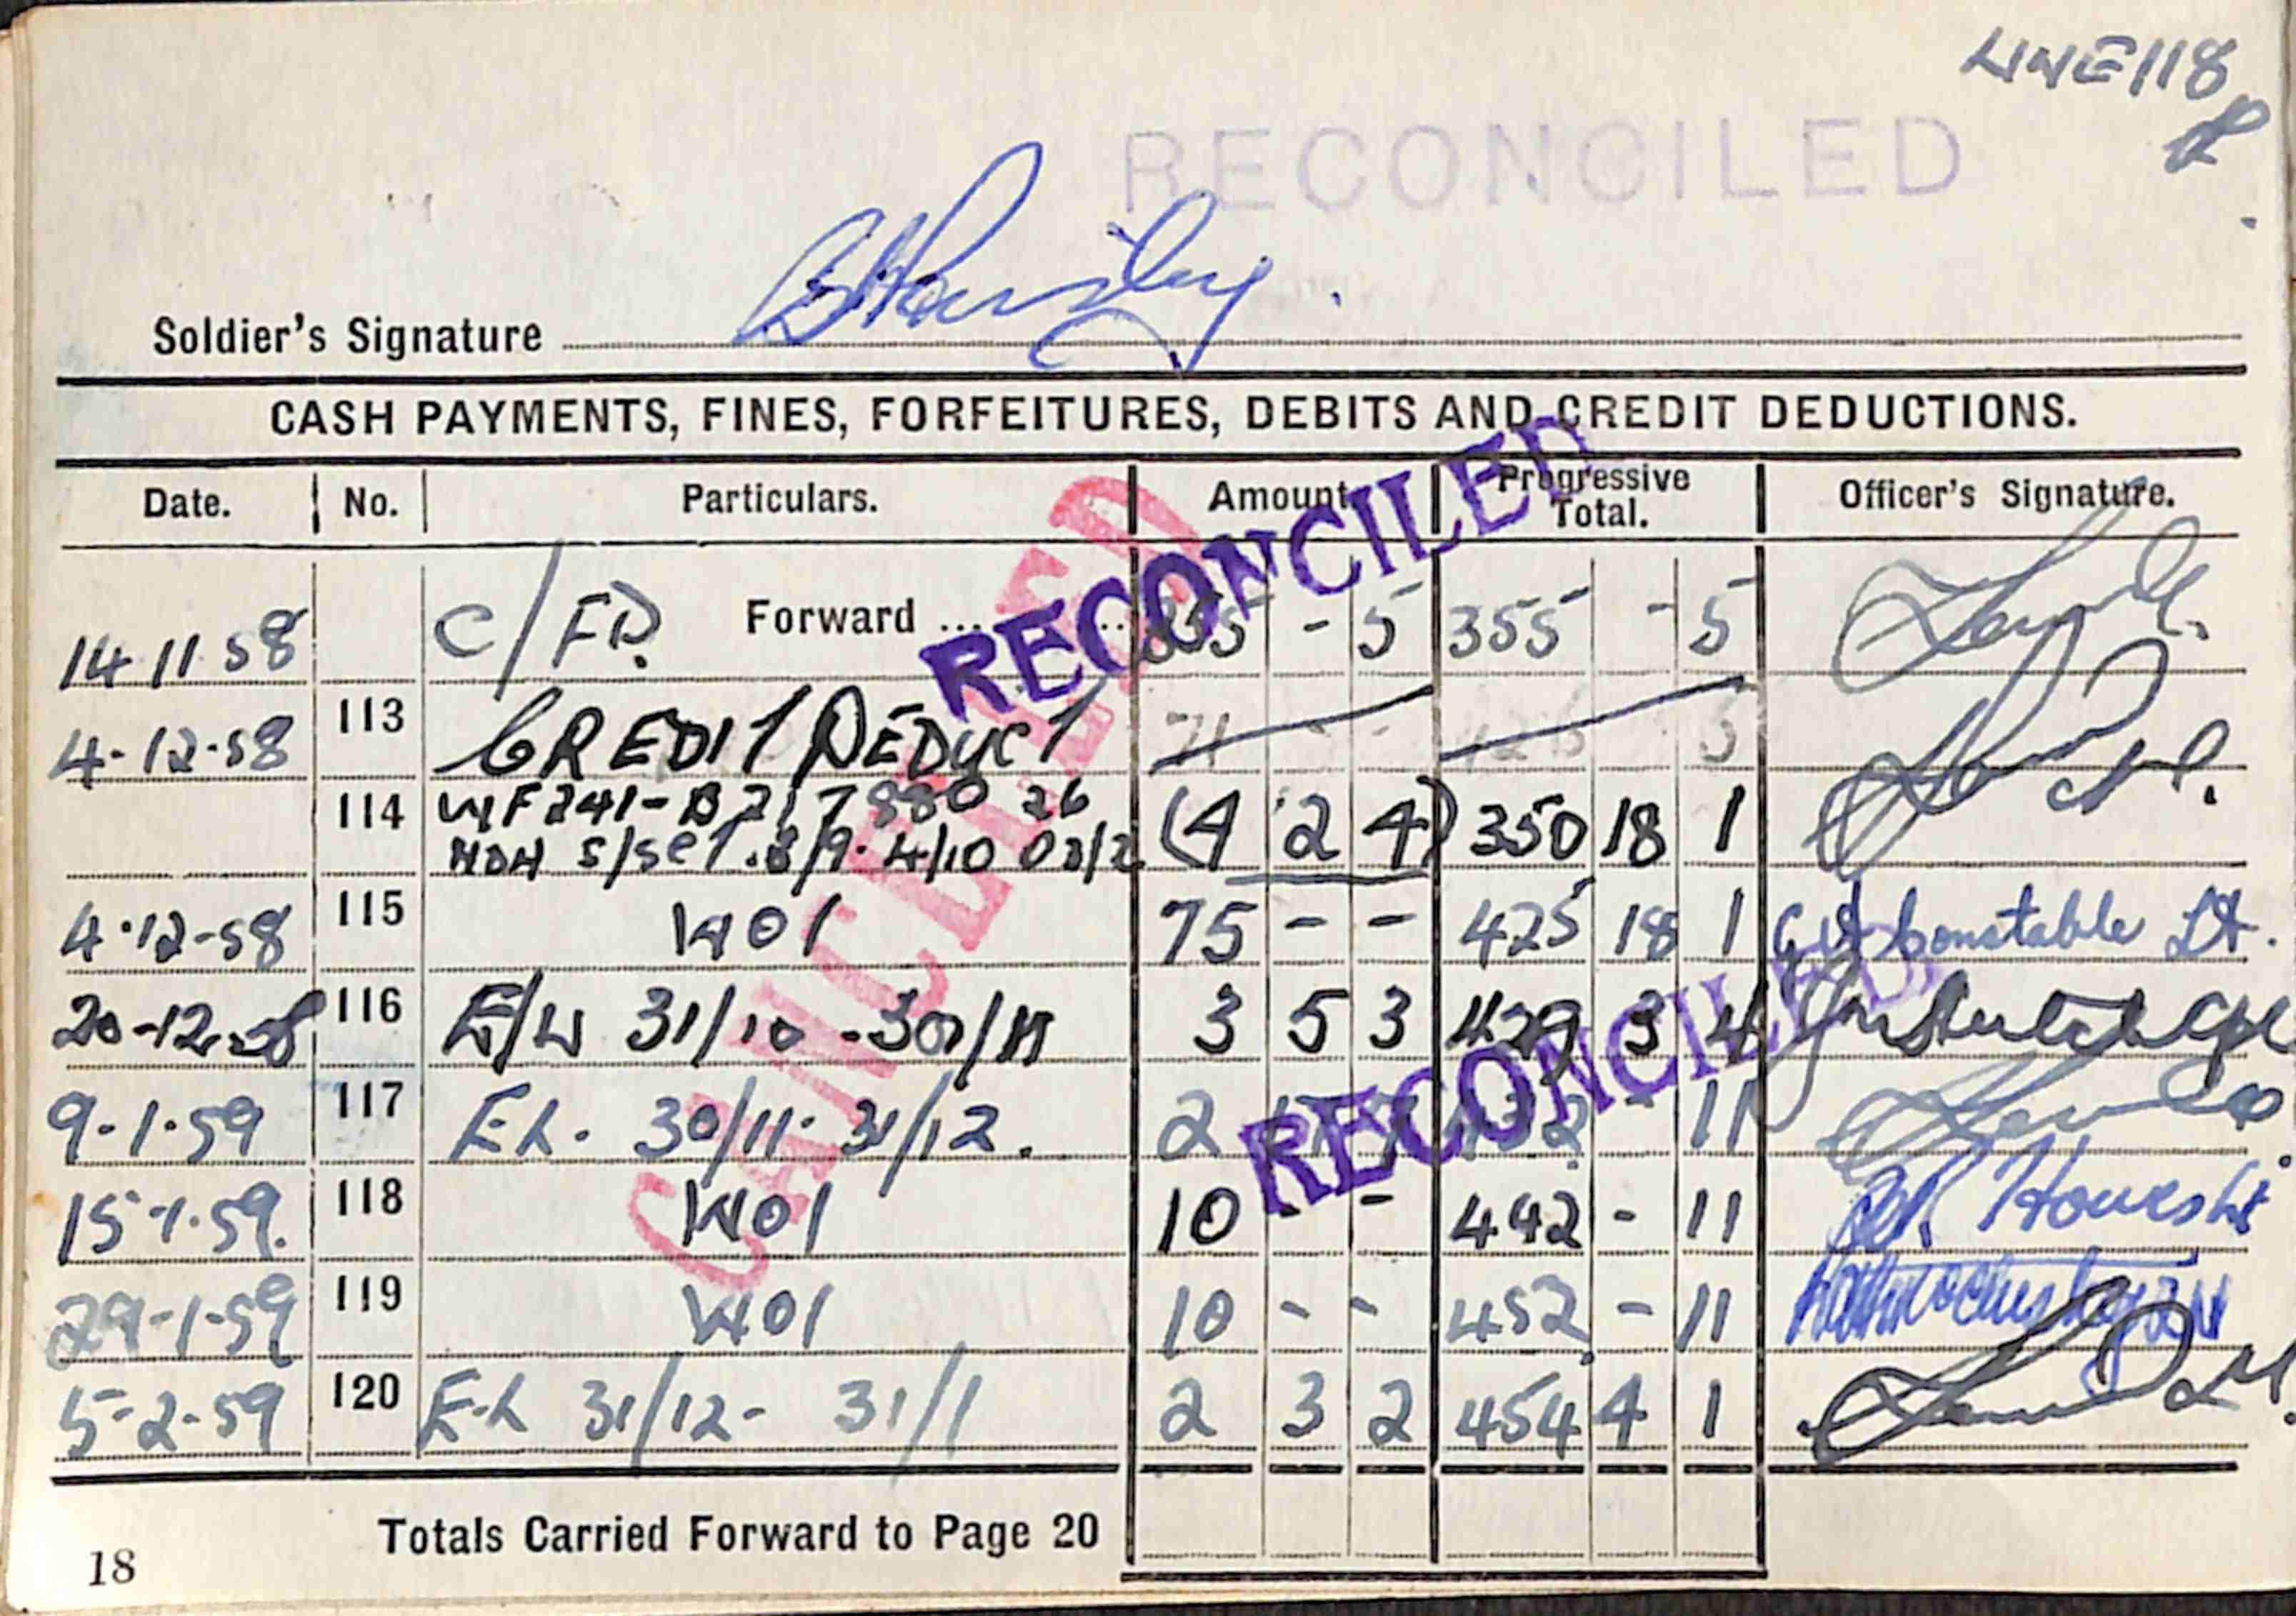 LINE 118
RECONCILED
Soldier's Signature
CASH PAYMENTS, FINES, FORFEITURES, DEBITS AND CREDIT DEDUCTIONS.
Date. No. Particulars. Amount Progressive Total. Officer's Signature.
RECONCILED
CANCELLED
14 11 58 C/FD. Forward ... 355 - 5 355 - 5
4-12-58 113 CREDIT DEDUCT 71 - -
114 WF241-B 217 880 26 (4 2 4) 350 18 1
5/Set. 8/9. 4/10
4-12-58 115 W01 75 - - 425 18 1 Constable Lt.
20-12-58 116 E/W 31/10 - 30/11 3 5 3 429 3 4
RECONCILED
9-1-59 117 E.L. 30/11- 31/12. 2 432 - 11
15-1-59. 118 W01 10 - - 442 - 11
29-1-59 119 W01 10 - - 452 - 11
5-2-59 120 E.L 31/12- 31/1 2 3 2 454 4 1
Totals Carried Forward to Page 20
18